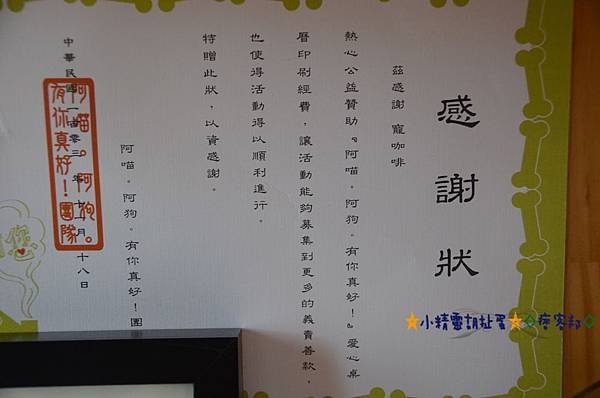 感謝狀
茲感謝 寵咖啡
熱心公益贊助『阿喵。阿狗。有你真好！』愛心桌
曆印刷經費，讓活動能夠募集到更多的義賣善款，
也使得活動得以順利進行。
特贈此狀，以資感謝。
阿喵。阿狗。有你真好！團
中華民國一百零三年十一月二十八日
阿喵。阿狗。
有你真好！團隊
你
小精靈胡扯蛋 痞客邦